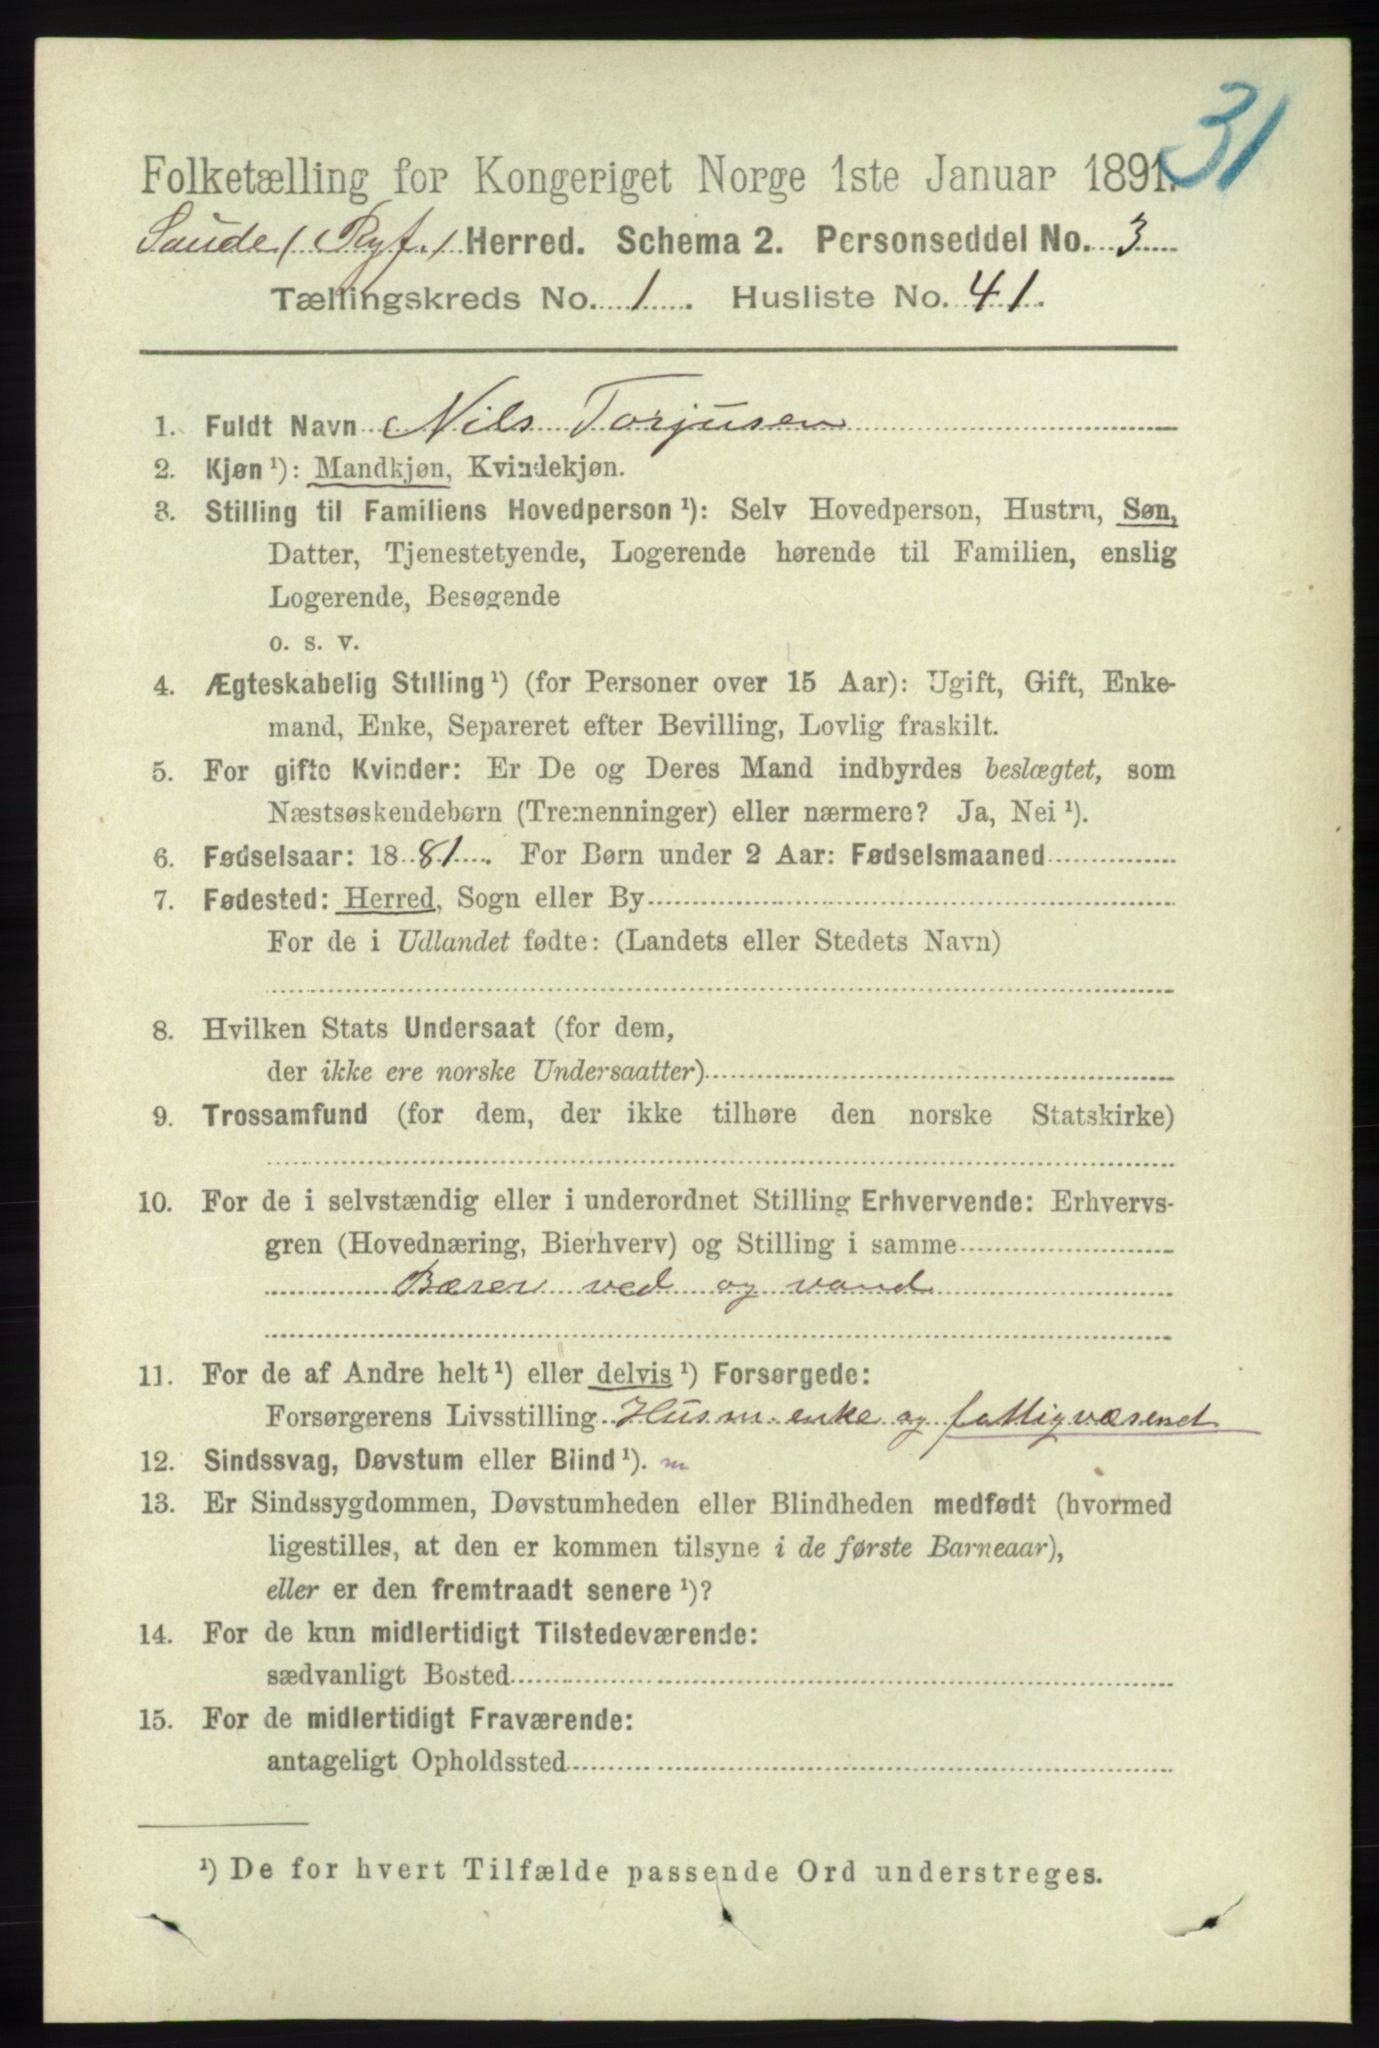 31
Folketælling for Kongeriget Norge 1ste Januar 1891.
Saude (Ryf.) Herred. Schema 2. Personseddel No. 3
Tællingskreds No. 1. Husliste No. 41.
1. Fuldt Navn Nils Torjusen
2. Kjøn ¹): Mandkjøn, Kvindekjøn.
3. Stilling til Familiens Hovedperson ¹): Selv Hovedperson, Hustru, Søn,
Datter, Tjenestetyende, Logerende hørende til Familien, enslig
Logerende, Besøgende
o. s. v.
4. Ægteskabelig Stilling ¹) (for Personer over 15 Aar): Ugift, Gift, Enke-
mand, Enke, Separeret efter Bevilling, Lovlig fraskilt.
5. For gifte Kvinder: Er De og Deres Mand indbyrdes beslægtet, som
Næstsøskendebørn (Tremenninger) eller nærmere? Ja, Nei ¹).
6. Fødselsaar: 1881. For Børn under 2 Aar: Fødselsmaaned
7. Fødested: Herred, Sogn eller By
For de i Udlandet fødte: (Landets eller Stedets Navn)
8. Hvilken Stats Undersaat (for dem,
der ikke ere norske Undersaatter)
9. Trossamfund (for dem, der ikke tilhøre den norske Statskirke)
10. For de i selvstændig eller i underordnet Stilling Erhvervende: Erhvervs-
gren (Hovednæring, Bierhverv) og Stilling i samme
Bærer ved og vand
11. For de af Andre helt ¹) eller delvis ¹) Forsørgede:
Forsørgerens Livsstilling Husm. enke og fattigvæsenet
12. Sindssvag, Døvstum eller Blind ¹). m
13. Er Sindssygdommen, Døvstumheden eller Blindheden medfødt (hvormed
ligestilles, at den er kommen tilsyne i de første Barneaar),
eller er den fremtraadt senere ¹)?
14. For de kun midlertidigt Tilstedeværende:
sædvanligt Bosted
15. For de midlertidigt Fraværende:
antageligt Opholdssted
¹) De for hvert Tilfælde passende Ord understreges.